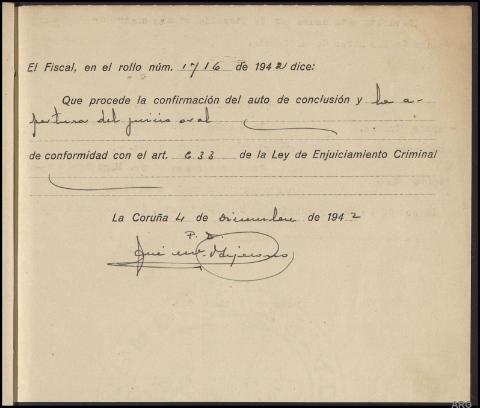 El Fiscal, en el rollo núm. 1716 de 1942 dice:
Que procede la confirmación del auto de conclusión y la a-
pertura del juicio oral
de conformidad con el art. 633 de la Ley de Enjuiciamiento Criminal
La Coruña 4 de diciembre de 1942
P. D.
ARG